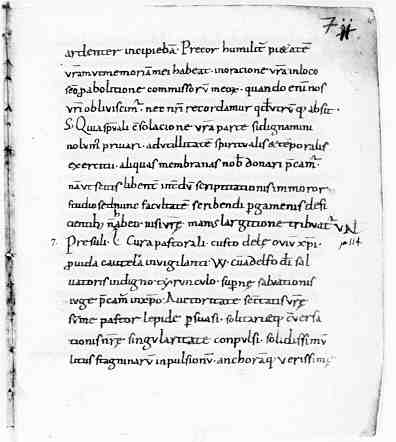 ardenter incipiebā. Precor humilit̄ pi&atē
vr̄am ut memoriam ei habeat. inoracione vr̄a inloco
sc̄o, p abolitione commissorū meoꝝ. quando enī nos
vr̄i obliviscim̄. nec nr̄i recordamur qđ utrūq; absit.
S; Quia sp̄uali c̄solacione vr̄a parte si dignamini
nolum̄ privari. ad utilitatē spiritualis & tēporalis
exercitii. aliquas membranas nob̄ donari p̄cam̄.
nā ut scitis libent̄ int̄dū scriptitationis immoror
studio sed nunc facultatē scribendi pergamenis defi
cientib; n̄ habeo nisi vr̄e man̄s largitione tribuat̄
7. Presuli. l. Cura pastorali. custo dele oviū xp̄i.
ꝓuida cautela invigilanti. W. cuadelfo d̄i sal
vatoris indigno tyrunculo. supne salvationis
iuge p̄cam̄ in xp̄o. Auctoritate sc̄itatis vr̄e
sūme pastor lepide ꝑsuasi. solitarieq; c̄versa
tionis nr̄e singularitate conpulsi. solidissimū
litus inpulsionū. anchoraq; verissime